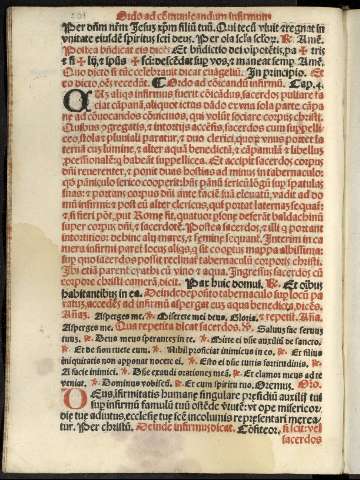 Ordo ad cōmunicandum infirmum
Per dñm nr̄m Jesuʒ xp̄m filiū tuū. Qui tecū viuit ⁊ regnat in
vnitate eiusdē spiritus scti deus. Per oīa scla sclor. ℟. Amē.
Postea bñdicat eis dicēs. Et bñdictio dei oīpotētis, pa ✠ tris
⁊ fi ✠ lij, ⁊ sp̄us ✠ sci: descēdat sup vos, ⁊ maneat semp. Amē.
Quo dicto si tūc celebrauit dicat euāgeliū. In principio. Et
eo dicto, oēs recedāt. Ordo ad cōicandū infirmū. Cap. 4.
aliquis infirmus fuerit cōicādus, sacerdos pulsare fa
ciat cāpanā, aliquot ictus dādo ex vna sola parte cāpa
ne ad cōuocandos cōuicinos, qui volūt sociare corpus christi.
Quibus ōgregatis, ⁊ intorticis accēsis, sacerdos cum suppelli
ceo, stola ⁊ pluuiali paratur, ⁊ duo clerici, quoȓ vnus portet la
ternā cus lumine, ⁊ alter aquā benedictā, ⁊ cāpanulā ⁊ libellus
ꝓcessionaleʒ babeāt suppelliceos. Et accipit sacerdos corpus
dñi reuerenter, ⁊ ponit duas hostias ad minus in tabernaculo:
suas: ⁊ portans corpus dñi ante faciē suā eleuatū, vadit ad do
mū infirmi: ⁊ post eū alter clericus, qui portat laternas se quat:
⁊ si fieri pōt, put Rome fit, quatuor plone deferāt baldachinū
super corpus dñi, ⁊ sacerdotē. Postea sacerdos, ⁊ illi q portant
intorticio: dehinc alij mares, ⁊ femine sequant. Interim in ca
mera infirmi paret locus aliqs, q sit coopus mappa albissima:
sup quo sacerdos possit reclinare tabernaculū corporis christi.
Ibi etiā parent cyathi cū vino ⁊ aqua. Ingressus sacerdos cū
corpore christi camerā, dicit. Pax huic domui. ℟. Et oībus
habitantibus in ea. Deinde deposito tabernaculo sup locū pa
ratus, accedēs ad infirmū aspergat eus aqua benedicta, dicēs.
Añaʒ. Asperges me. Miserere mei deus. Gloria. ⁊ repetit. Aña.
Asperges me. Qua repetita dicat sacerdos. ℣. Saluuʒ fac seruuʒ
tuuʒ. Deus meus sperantes in te. Mitte ei dñe auxiliū de sancto.
℟. Et de sion tuere eum. Nibil proficiat inimicus in eo. ℟. Et filius
iniquitatis non apponat nocere ei. Esto ei dñe turris fortitudinis. ℟.
A facie inimici. Dñe exaudi orationes meā. ℟. Et clamor meus ad te
veniat. Dominus vobiscū. ℟. Et cum spiritu tuo. Oremus. Oro.
Deus, infirmitatis humane singulare presidiū auxilij tui
sup infirmū famulū tuū ostēde v̓tutē: vt ope misericor
die tue adiutus, ecclesie tue scē incolumis representari merea
tur. Per christū. Deinde infirmus dicat. Cōfiteor. sicut: vel
sacerdos